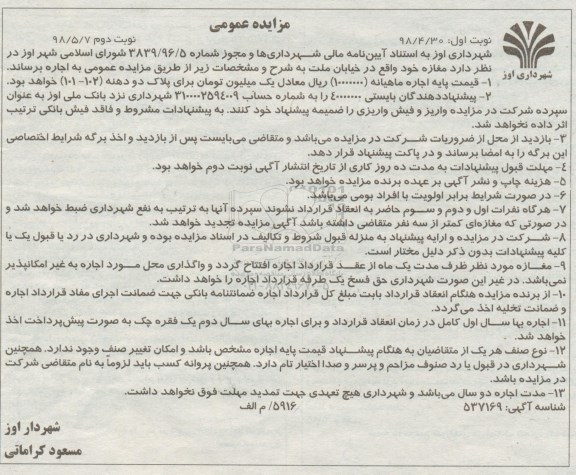 مزایده عمومی
نوبت اول: ۹۸/۴/۳۰
نوبت دوم ۹۸/۵/۷
شهرداری اوز
شهرداری اوز به استناد آیین‌نامه مالی شهرداری‌ها و مجوز شماره ۳۸۳۹/۹۶/۵ شورای اسلامی شهر اوز در
نظر دارد مغازه خود واقع در خیابان ملت به شرح و مشخصات زیر از طریق مزایده عمومی به اجاره برساند.
۱- قیمت پایه اجاره ماهیانه (۱۰۰۰۰۰۰۰) ریال معادل یک میلیون تومان برای پلاک دو دهنه (۱۰۲- ۱۰۱) خواهد بود.
۲- پیشنهاددهندگان بایستی ۴۰۰۰۰۰۰۰ را به شماره حساب ۳۱۰۰۰۰۲۵۹۴۰۰۹ شهرداری نزد بانک ملی اوز به عنوان
سپرده شرکت در مزایده واریز و فیش واریزی را ضمیمه پیشنهاد خود کنند. به پیشنهادات مشروط و فاقد فیش بانکی ترتیب
اثر داده نخواهد شد.
۳- بازدید از محل از ضروریات شرکت در مزایده می‌باشد و متقاضی می‌بایست پس از بازدید و اخذ برگه شرایط اختصاصی
این برگه را به امضا برساند و در پاکت پیشنهاد قرار دهد.
۴- مهلت قبول پیشنهادات به مدت ده روز کاری از تاریخ انتشار آگهی نوبت دوم خواهد بود.
۵- هزینه چاپ و نشر آگهی بر عهده برنده مزایده خواهد بود.
۶- در صورت شرایط برابر اولویت با افراد بومی می‌باشد.
۷- هرگاه نفرات اول و دوم و سوم حاضر به انعقاد قرارداد نشوند سپرده آنها به ترتیب به نفع شهرداری ضبط خواهد شد و
در صورتی که مغازه‌ای کمتر از سه نفر متقاضی داشته باشد آگهی مزایده تجدید خواهد شد.
۸- شرکت در مزایده و ارایه پیشنهاد به منزله قبول شروط و تکالیف در اسناد مزایده بوده و شهرداری در رد یا قبول یک یا
کلیه پیشنهادات بدون ذکر دلیل مختار است.
۹- مغازه مورد نظر ظرف مدت یک ماه از عقد قرارداد اجاره افتتاح گردد و واگذاری محل مورد اجاره به غیر امکانپذیر
نمی‌باشد. در غیر این صورت شهرداری حق فسخ یک طرفه قرارداد اجاره را خواهد داشت.
۱۰- از برنده مزایده هنگام انعقاد قرارداد بابت مبلغ کل قرارداد اجاره ضمانتنامه بانکی جهت ضمانت اجرای مفاد قرارداد اجاره
و ضمانت تخلیه اخذ می‌گردد.
۱۱- اجاره بها سال اول کامل در زمان انعقاد قرارداد و برای اجاره بهای سال دوم یک فقره چک به صورت پیش‌پرداخت اخذ
خواهد شد.
۱۲- نوع صنف هر یک از متقاضیان به هنگام پیشنهاد قیمت پایه اجاره مشخص باشد و امکان تغییر صنف وجود ندارد. همچنین
شهرداری در قبول یا رد صنوف مزاحم و پرسر و صدا اختیار تام دارد. همچنین پروانه کسب باید لزوماً به نام متقاضی شرکت
در مزایده باشد.
۱۳- مدت اجاره دو سال می‌باشد و شهرداری هیچ تعهدی جهت تمدید مهلت فوق نخواهد داشت.
شناسه آگهی: ۵۳۷۱۶۹
۵۹۱۶/ م الف
شهردار اوز
مسعود کراماتی
ParsNamadData